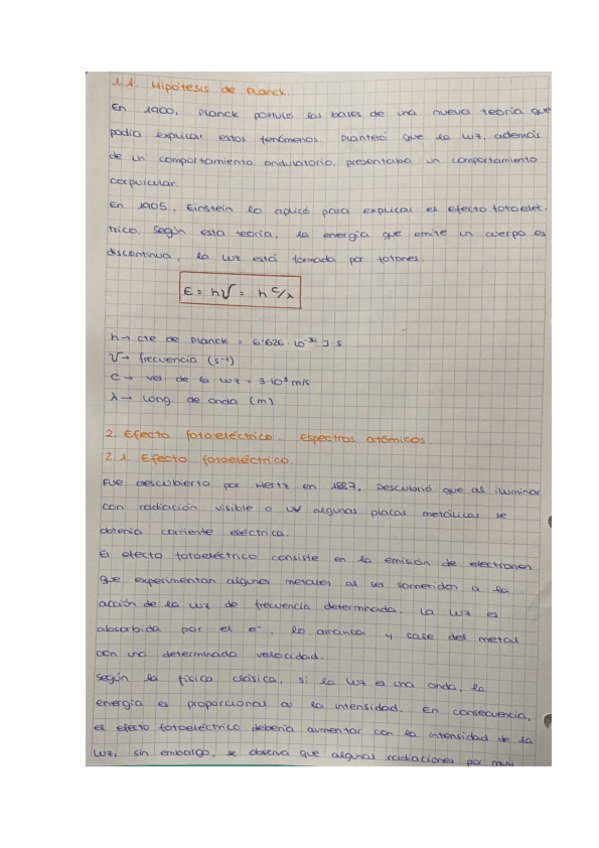 1.1. Hipótesis de Planck.
En 1900, Planck postuló las bases de una nueva teoría que
podía explicar estos fenómenos. Planteó que la luz, además
de un comportamiento ondulatorio, presentaba un comportamiento
corpuscular.
En 1905, Einstein lo aplicó para explicar el efecto fotoeléc-
trico. Según esta teoría, la energía que emite un cuerpo es
discontinua, la luz está formada por fotones.
E = hν = h c/λ
h → cte de Planck = 6'626·10⁻³⁴ J·s
ν → frecuencia (s⁻¹)
c → vel. de la luz = 3·10⁸ m/s
λ → Long. de onda (m)
2. Efecto fotoeléctrico. Espectros atómicos.
2.1. Efecto fotoeléctrico.
Fue descubierto por Hertz en 1887. Descubrió que al iluminar
con radiación visible o UV algunas placas metálicas se
obtenía corriente eléctrica.
El efecto fotoeléctrico consiste en la emisión de electrones
que experimentan algunos metales al ser sometidos a la
acción de la luz de frecuencia determinada. La luz es
absorbida por el e⁻, lo arranca y sale del metal
con una determinada velocidad.
Según la física clásica, si la luz es una onda, la
energía es proporcional a la intensidad. En consecuencia,
el efecto fotoeléctrico debería aumentar con la intensidad de la
luz, sin embargo, se observa que algunas radiaciones por muy